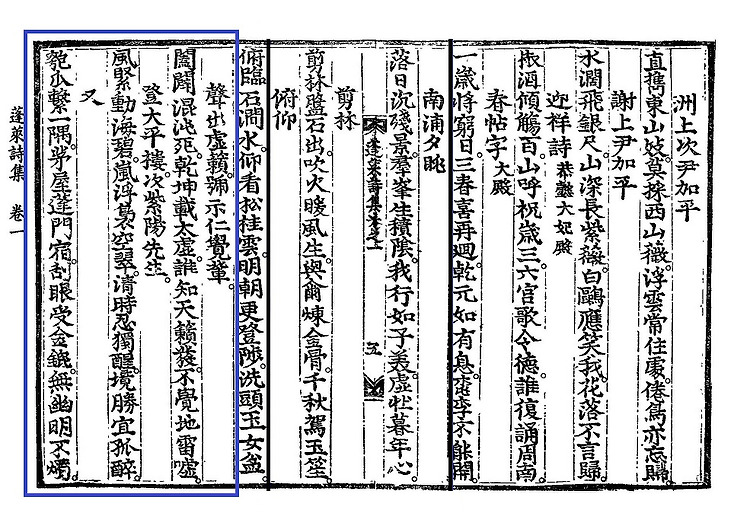 洲上次尹加平
直攜東山妓莫採西山薇浮雲常住處倦鳥亦忘歸
謝上尹加平
水濶飛銀尺山深長紫薇白鷗應笑我花落不言歸
迎祥詩 恭懿大妃殿
椒酒傾觴百山呼祝歲三六宮歌令德誰復誦周南
春帖字 大殿
一歲將窮日三春喜再廻乾元如有息李不能開
南浦夕眺
落日沉殘景羣峯生積陰我行如子羙虛壯暮年心
蓬萊詩集卷之一 五
剪林
剪林盤石出吹火暖風生與爾煉金骨千秋駕玉笙
俯仰
俯臨石澗水仰看松桂雲明朝更登陟洗頭玉女盆
聲出虛籟歸示仁覺輩
闔闢混沌死乾坤載太虛誰知天籟發不覺地雷噓
登大平樓次紫陽先生
風緊動海碧嵐浮空翠清時忍獨醒境勝宜孤醉
又
匏瓜繫一隅茅屋蓬門宿刮眼受金鎞無幽明不燭
蓬萊詩集 卷一